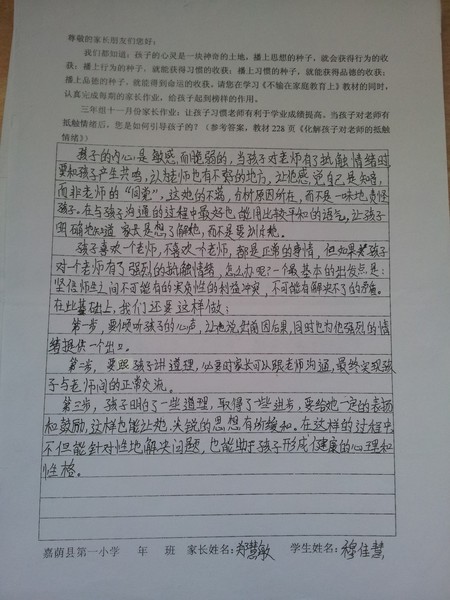 尊敬的家长朋友们您好：
我们都知道：孩子的心灵是一块神奇的土地，播上思想的种子，就会获得行为的收
获；播上行为的种子，就能获得习惯的收获；播上习惯的种子，就能获得品德的收获；
播上品德的种子，就能得到命运的收获。请您在学习《不输在家庭教育上》教材的同时，
认真完成每期的家长作业，给孩子起到榜样的作用。
三年组十一月份家长作业：让孩子习惯老师有利于学业成绩提高。当孩子对老师有
抵触情绪后，您是如何引导孩子的？（参考答案，教材228页《化解孩子对老师的抵触
情绪》）
孩子的内心是敏感而脆弱的，当孩子对老师有了抵触情绪时
要和孩子产生共鸣，认为老师也有不够的地方，让他感觉自己是知音，
而非老师的“同党”，这她的不满，分析原因所在，而不是一味地责怪
孩子。在与孩子沟通的过程中最好也能用比较平和的语气，让孩子
明确地知道家长是想了解他，而不是要训他。
孩子喜欢一个老师，不喜欢一个老师，都是正常的事情，但如果孩子
对一个老师有了强烈的抵触情绪，怎么办呢？一个最基本的出发点是：
坚信师生之间不可能有的实质性的利益冲突，不可能有解决不了的矛盾。
在此基础上，我们还要这样做：
第一步，要倾听孩子的心声，让她说出前因后果，同时也为他强烈的情
绪提供一个出口。
第二步，要跟孩子讲道理，必要时家长可以跟老师沟通，最终实现孩
子与老师间的正常交流。
第三步，孩子明白了一些道理，取得了一些进步，要给她一定的表扬
和鼓励，这样也能让她尖锐的思想有所缓和。在这样的过程中
不但能针对性地解决问题，也能助于孩子形成健康的心理和
性格。
嘉荫县第一小学 年 班 家长姓名：郑慧敏 学生姓名：穆佳慧